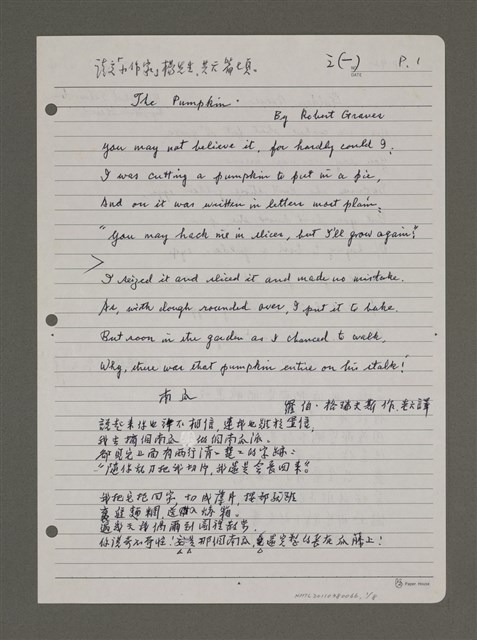 請交「小作家」楊先生, 共六篇七頁。
之(一)
P. 1
NO.
DATE
The Pumpkin.
By Robert Graves
You may not believe it, for hardly could I:
I was cutting a pumpkin to put in a pie,
And on it was written in letters most plain:
"You may hack me in slices, but I'll grow again!"
I seized it and sliced it and made no mistake.
As, with dough rounded over, I put it to bake.
But soon in the garden as I chanced to walk,
Why, there was that pumpkin entire on his stalk!
南瓜
羅伯·格瑞夫斯 作 譯
說起來你也許不相信,連我也難於置信,
我去摘個南瓜 做個南瓜派。
卻見它上面有兩行清清楚楚的字跡:
"隨你亂刀把我切片,我還是會長回來"。
我把它抱回家,切成薄片
裹進麵糊,送入烤箱。
過幾天我偶爾到園裡
你說奇不奇怪!竟是那個南瓜,還完整的長在瓜藤上!
Paper House
1/8